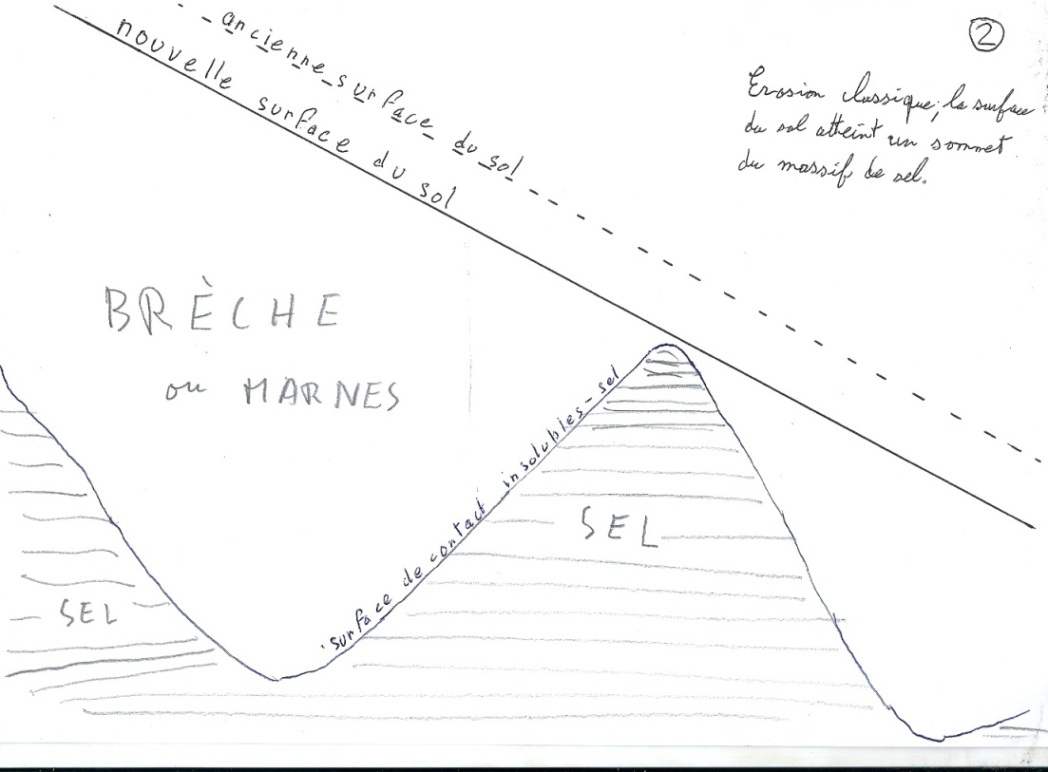 ②
ancienne surface du sol
nouvelle surface du sol
Erosion classique; la surface
du sol atteint un sommet
du massif de sel.
BRÈCHE
ou MARNES
surface de contact insolubles-sel
SEL
SEL